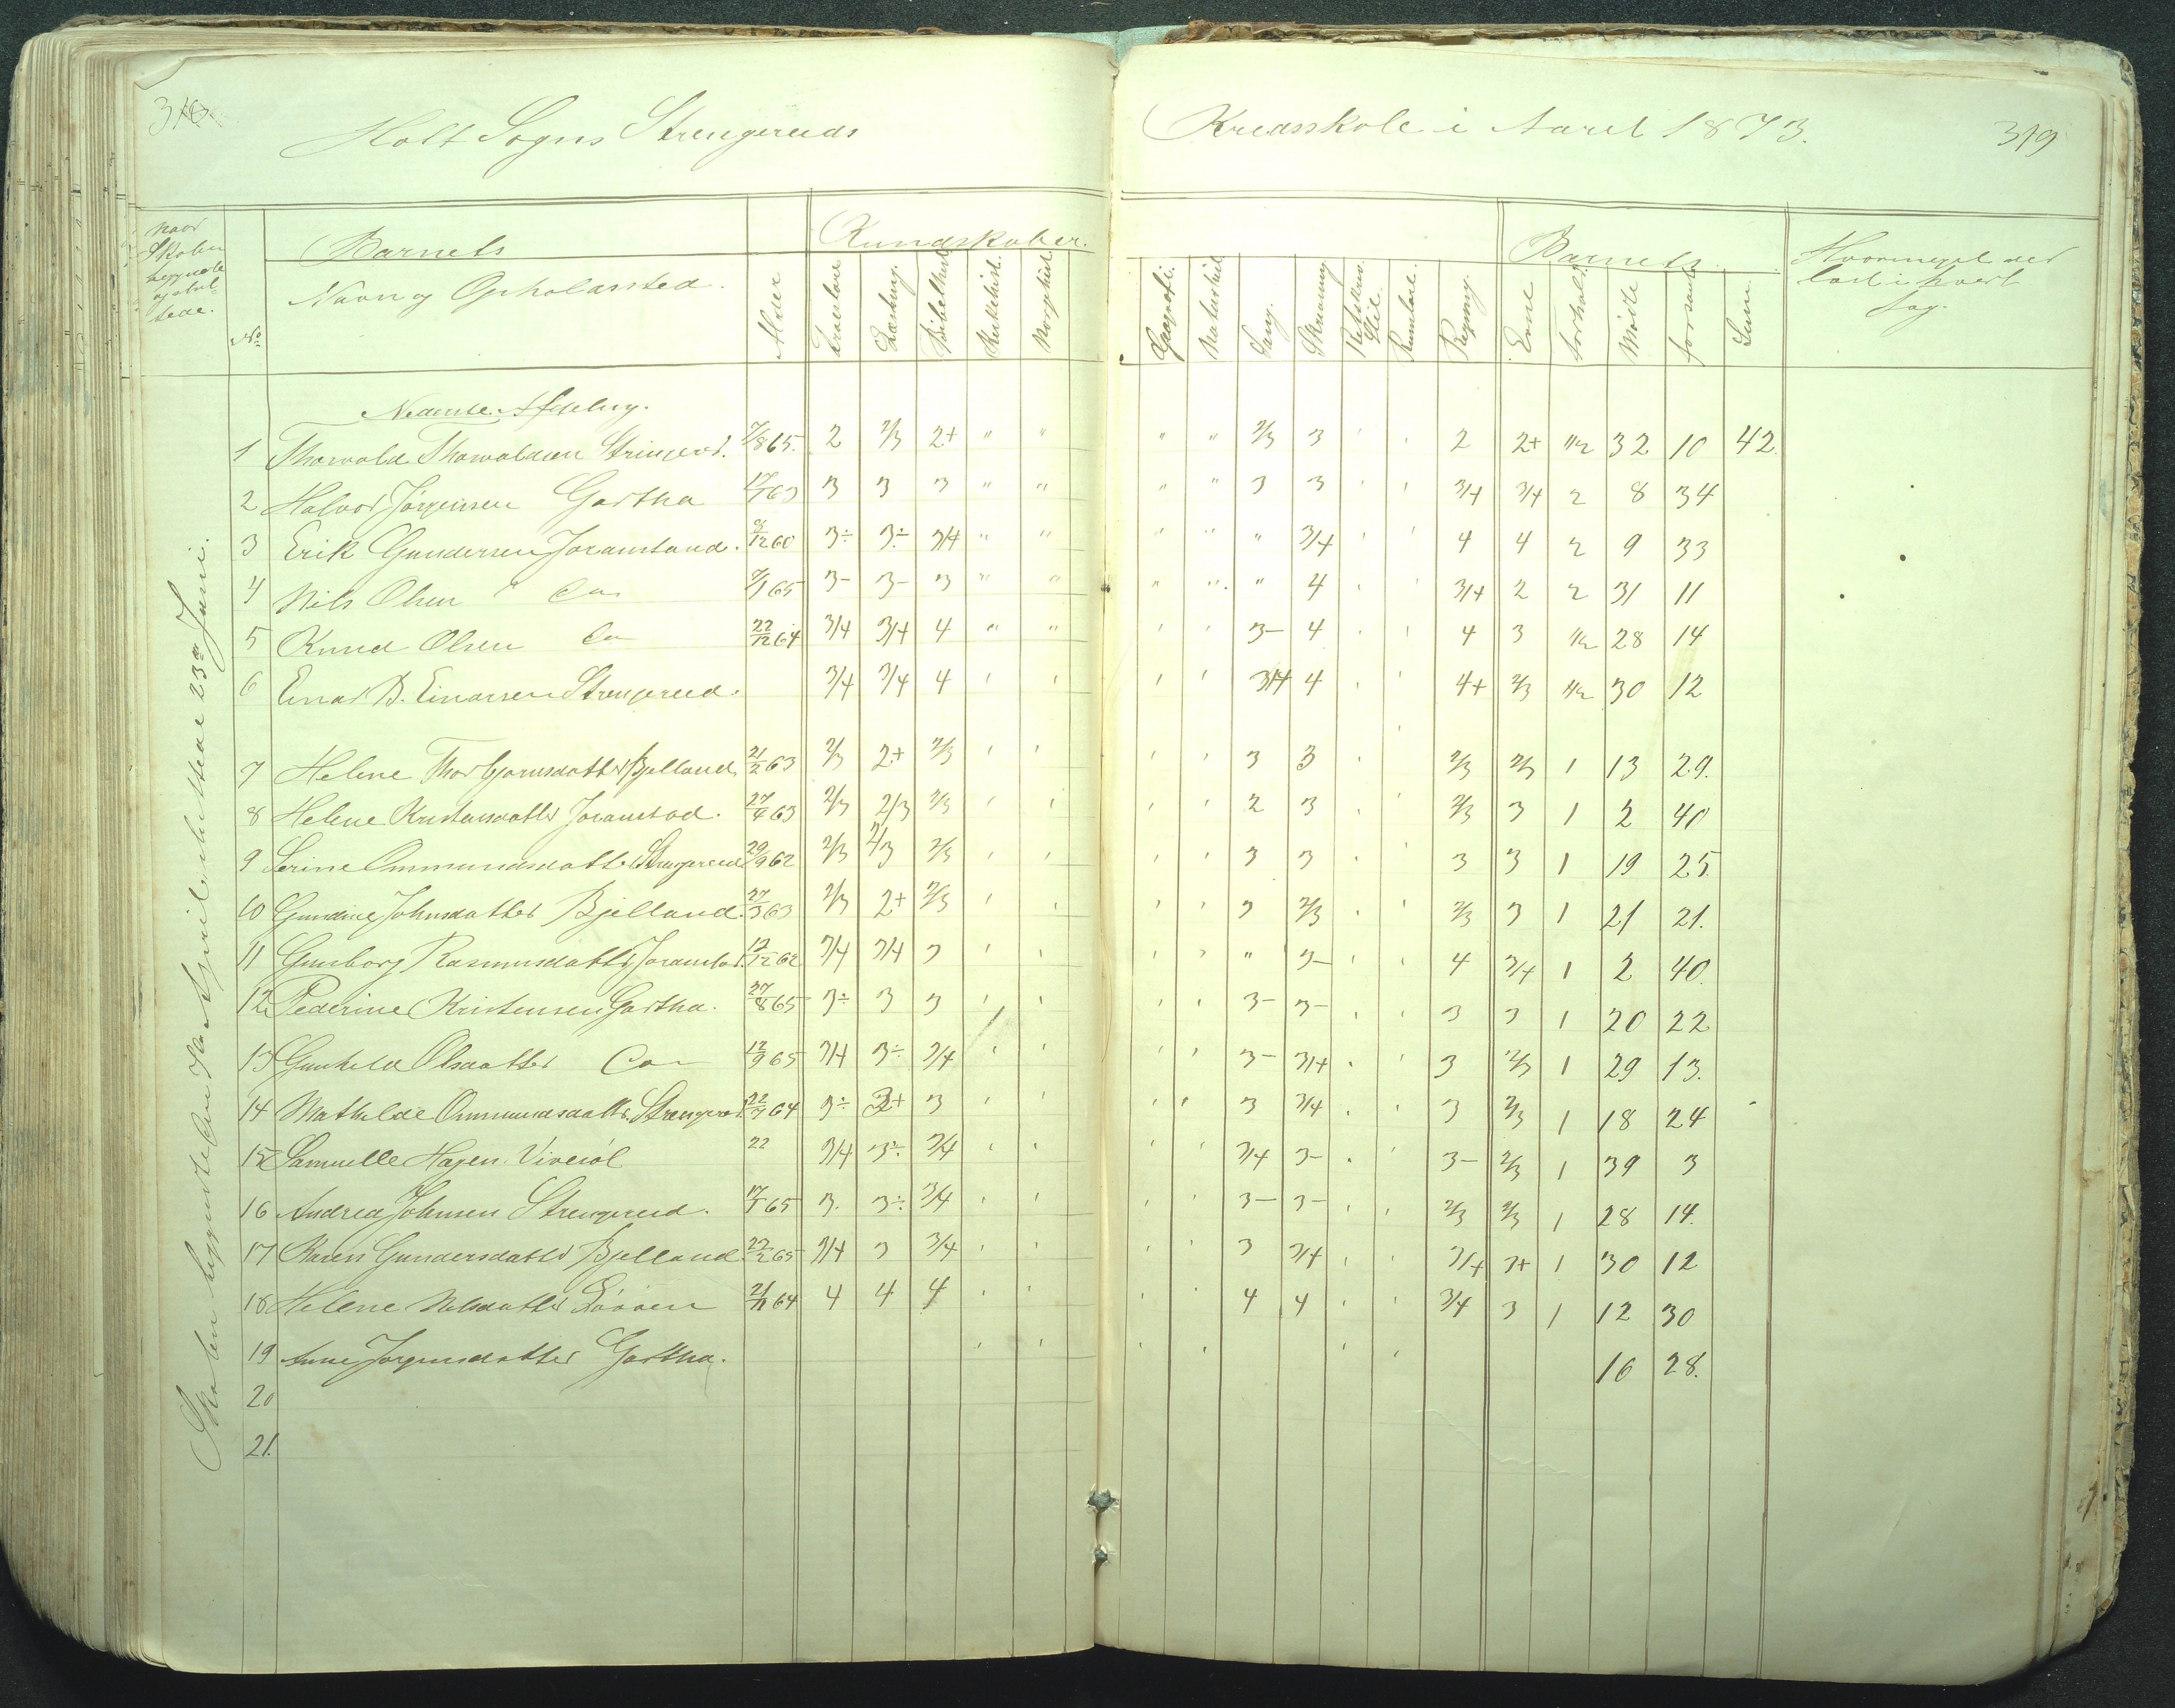 318.
Holt Sogns Strengereids
Kredsskole i Aaret 1873.
319
Naar Skolen begyndte og slut-tede.
No
Barnets
Navn og Opholdssted.
Alder
Kundskaber.
Troeslære
Læsning.
Bibelhist.
Kirkehist.
Norgehist.
Geografi.
Naturhist.
Sang.
Skrivning
Retskriv. Stil.
Rumlære.
Regning
Barnets
Evne
Forhold.
Mødte
forsømte
Sum.
Hvormeget der
læst i hvert
Fag.
Nederste Afdeling.
1 Thorvald Thorvaldsen Strengereid. 7/8 65. 2 2/3 2+ " " " " 2/3 3 ' ' 2 2+ 1/2 32 10 42.
2 Halvor Jørgensen Gartha 17/7 63 3 3 3 " " " " 3 3 ' ' 3/4 3/4 2 8 34
3 Erik Gundersen Joramstad. 9/12 60 3÷ 3÷ 3/4 " " " " " 3/4 ' ' 4 4 2 9 33
4 Nils Olsen " Do 7/1 65 3- 3- 3 " " " " " 4 ' ' 3/4 2 2 31 11
5 Knud Olsen Do 22/12 64 3/4 3/4 4 " " ' ' 3- 4 ' ' 4 3 1/2 28 14
6 Einar B. Einarsen Strengereid. 3/4 3/4 4 ' ' ' ' 3/4 4 ' ' 4+ 2/3 1/2 30 12
7 Helene Thorbjørnsdatter Bjelland 21/2 63 2/3 2+ 2/3 ' ' ' ' 3 3 ' ' 2/3 2/3 1 13 29.
8 Helene Kristensdatter Joramstad. 27/4 63 2/3 2/3 2/3 ' ' ' ' 2 3 ' ' 2/3 3 1 2 40
9 Serine Ommundsdatter Strengereid 29/9 62 2/3 2/3 2/3 ' ' ' ' 3 3 ' ' 3 3 1 19 25.
10 Gundine Johnsdatter Bjelland. 27/3 63 2/3 2+ 2/3 ' ' ' ' 3 2/3 ' ' 2/3 3 1 21 21.
11 Gunborg Rasmusdatter Joramstad. 12/12 62 3/4 3/4 3 ' ' ' ' " 3- ' ' 4 3/4 1 2 40.
12 Pederine Kristensen Gartha. 27/8 65 3÷ 3 3 ' ' ' ' 3- 3- ' ' 3 3 1 20 22
13 Gunhild Olsdatter Do 12/9 65 3/4 3÷ 3/4 ' ' ' ' 3- 3/4 ' ' 3 2/3 1 29 13.
14 Mathilde Ommundsdatter Strengereid. 22/7 64 3÷ 3+ 3 ' ' ' ' 3 3/4 ' ' 3 2/3 1 18 24
15 Samuelle Hagen 22 3/4 3÷ 3/4 ' ' ' ' 3/4 3- ' ' 3- 2/3 1 39 3
16 Andrea Johnsen Strengereid. 17/1 65 3. 3÷ 3/4 ' ' ' ' 3- 3- ' ' 2/3 2/3 1 28 14.
17 Karen Gundersdatter Bjelland 22/2 65 3/4 3 3/4 ' ' ' ' 3 3/4 ' ' 3/4 3+ 1 30 12
18 Helene Nilsdatter 21/11 64 4 4 4 ' ' ' ' 4 4 ' ' 3/4 3 1 12 30
19 Anne Jørgensdatter Gartha. ' ' ' ' ' ' 16 28.
20
21.
Skolen begyndte den April sluttede 23de Juni.